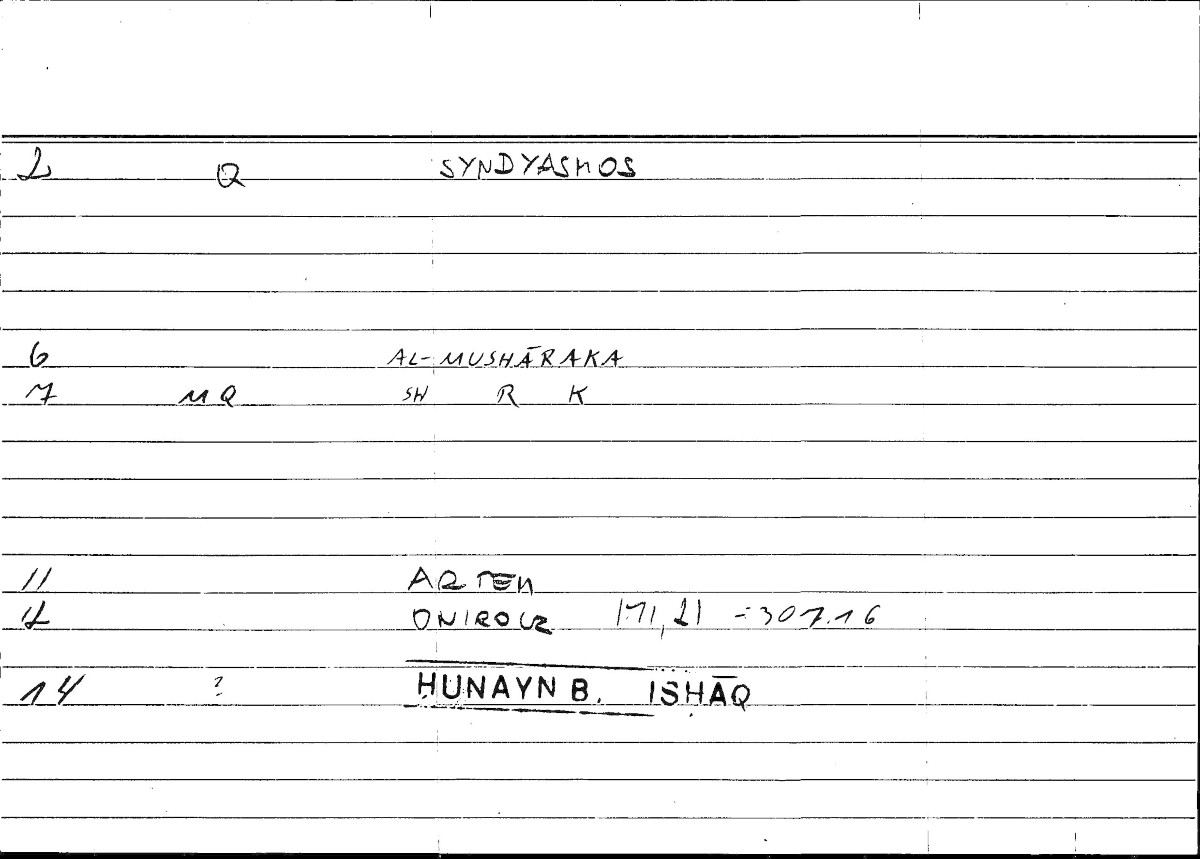 2 Q SYNDYASMOS
6 AL-MUSHĀRAKA
7 MQ SH R K
11 ARTEM
12 ONIROCR 171,21 = 307.16
14 ? ḤUNAYN B. ISḤĀQ